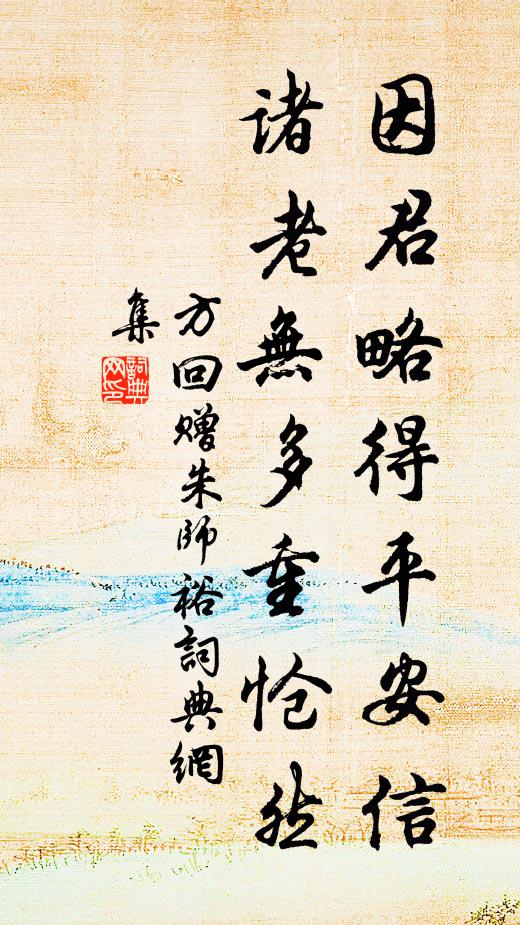 因君略得平安信
諸老無多重怆然
方回赠朱師裕詞典網
集
詞典網印